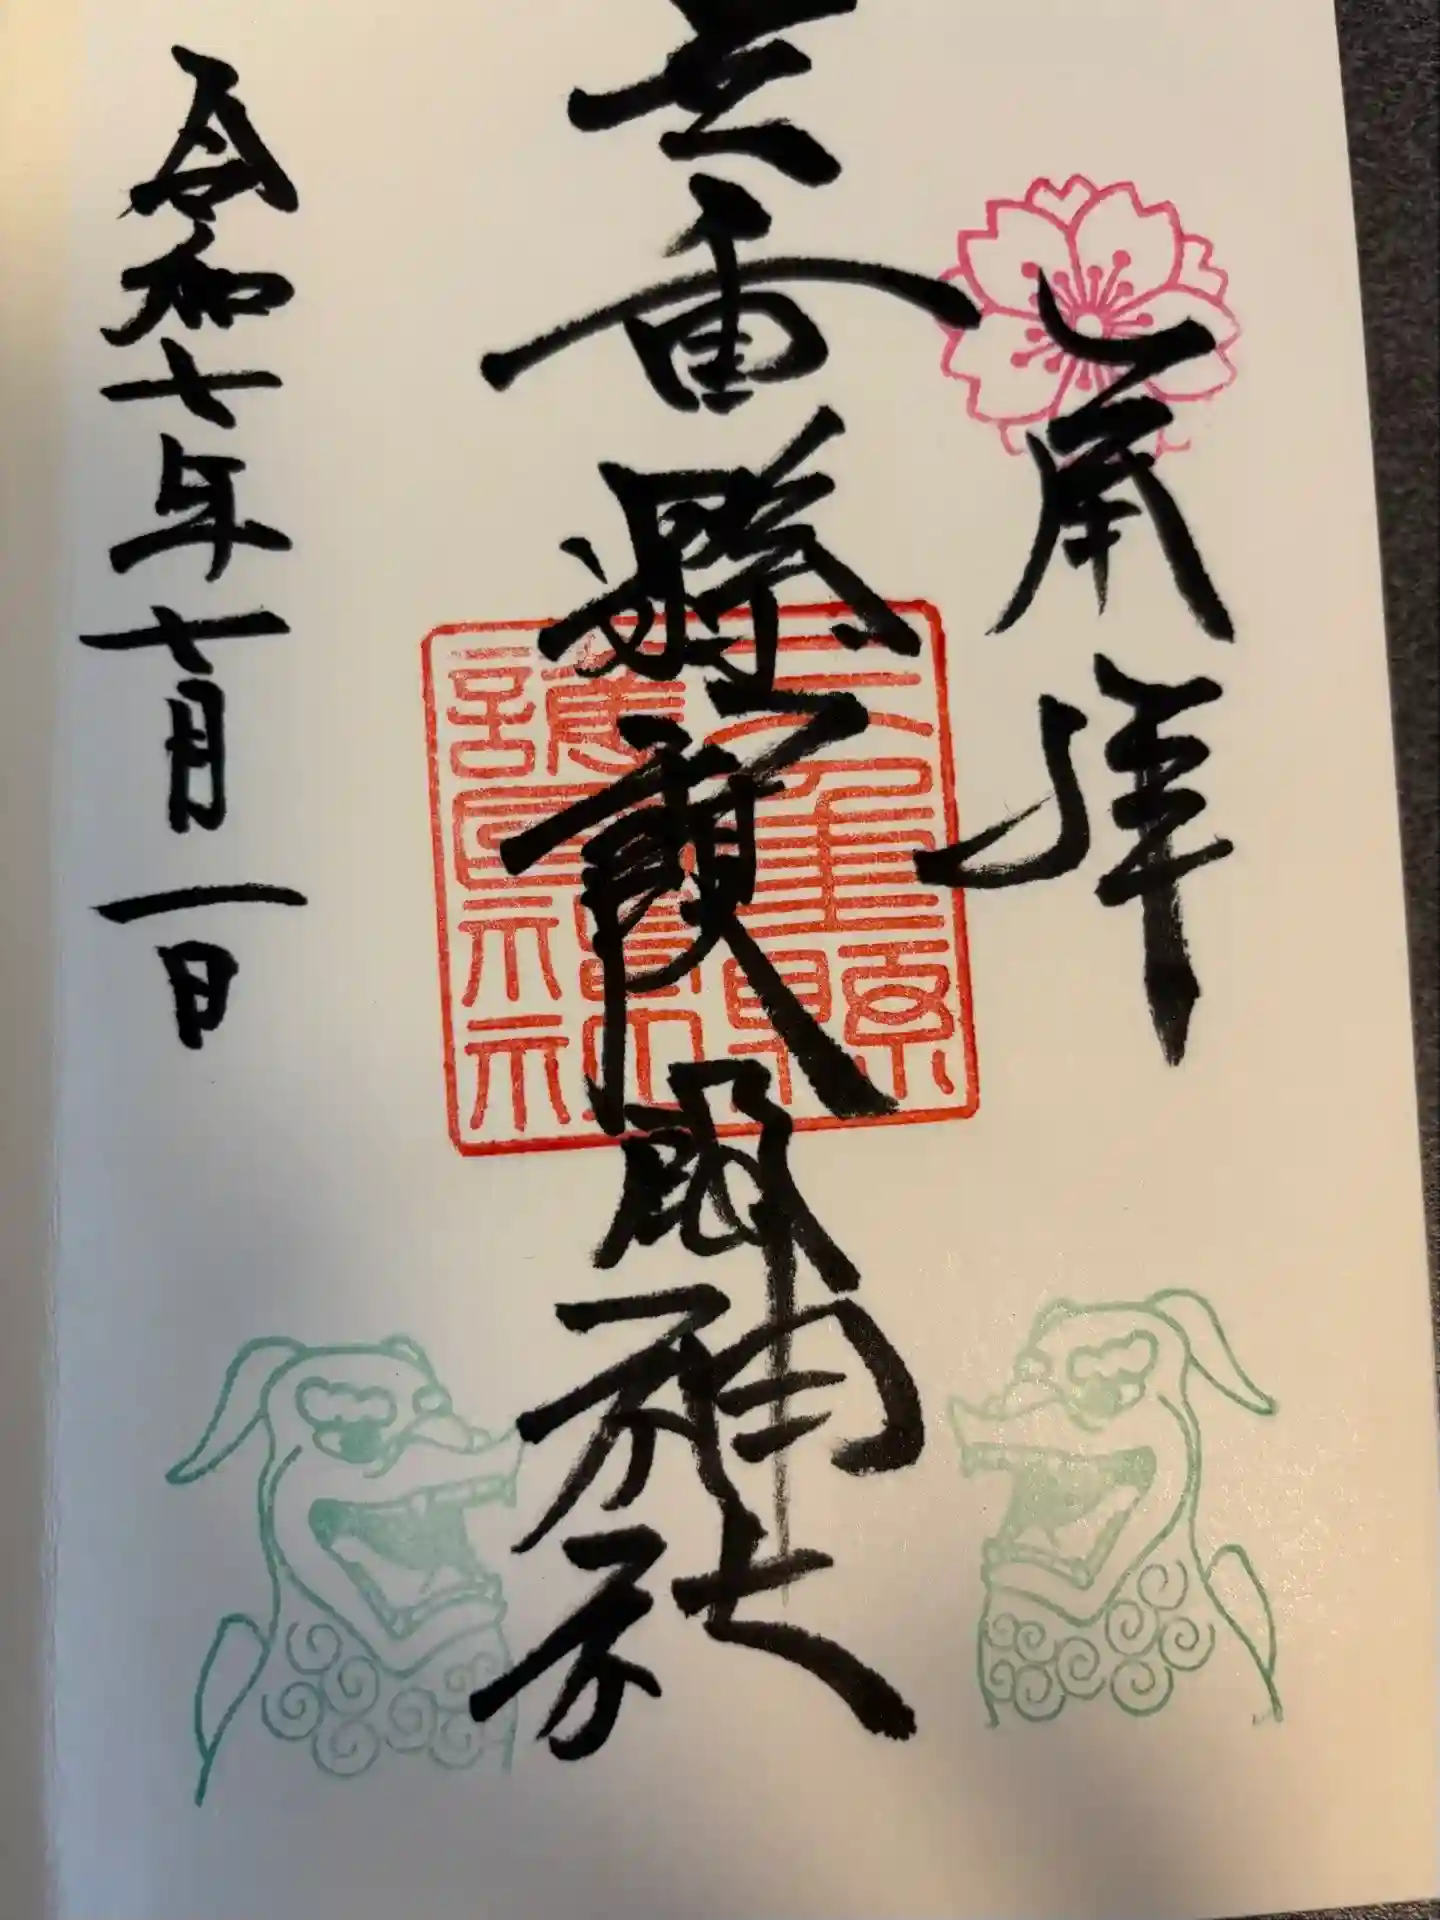 奉拝
三重縣護國神社
三重縣
護國神社
令和七年七月一日